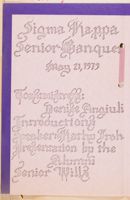 Sigma Kappa
Senior Banquet
May 21, 1973
Toastmistress:
Denise Angiuli
Introductions
Speaker
Presentation by the
Alumni
Senior Wills